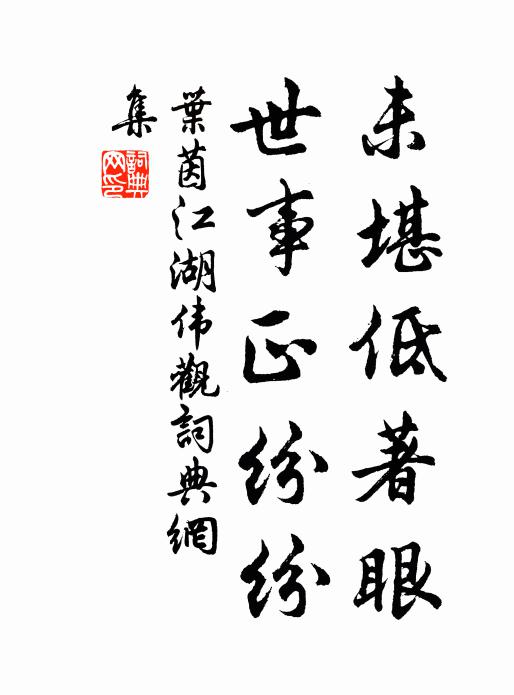 未堪低著眼
世事正纷纷
葉茵江湖伟觀詞典網
集
詞典網印